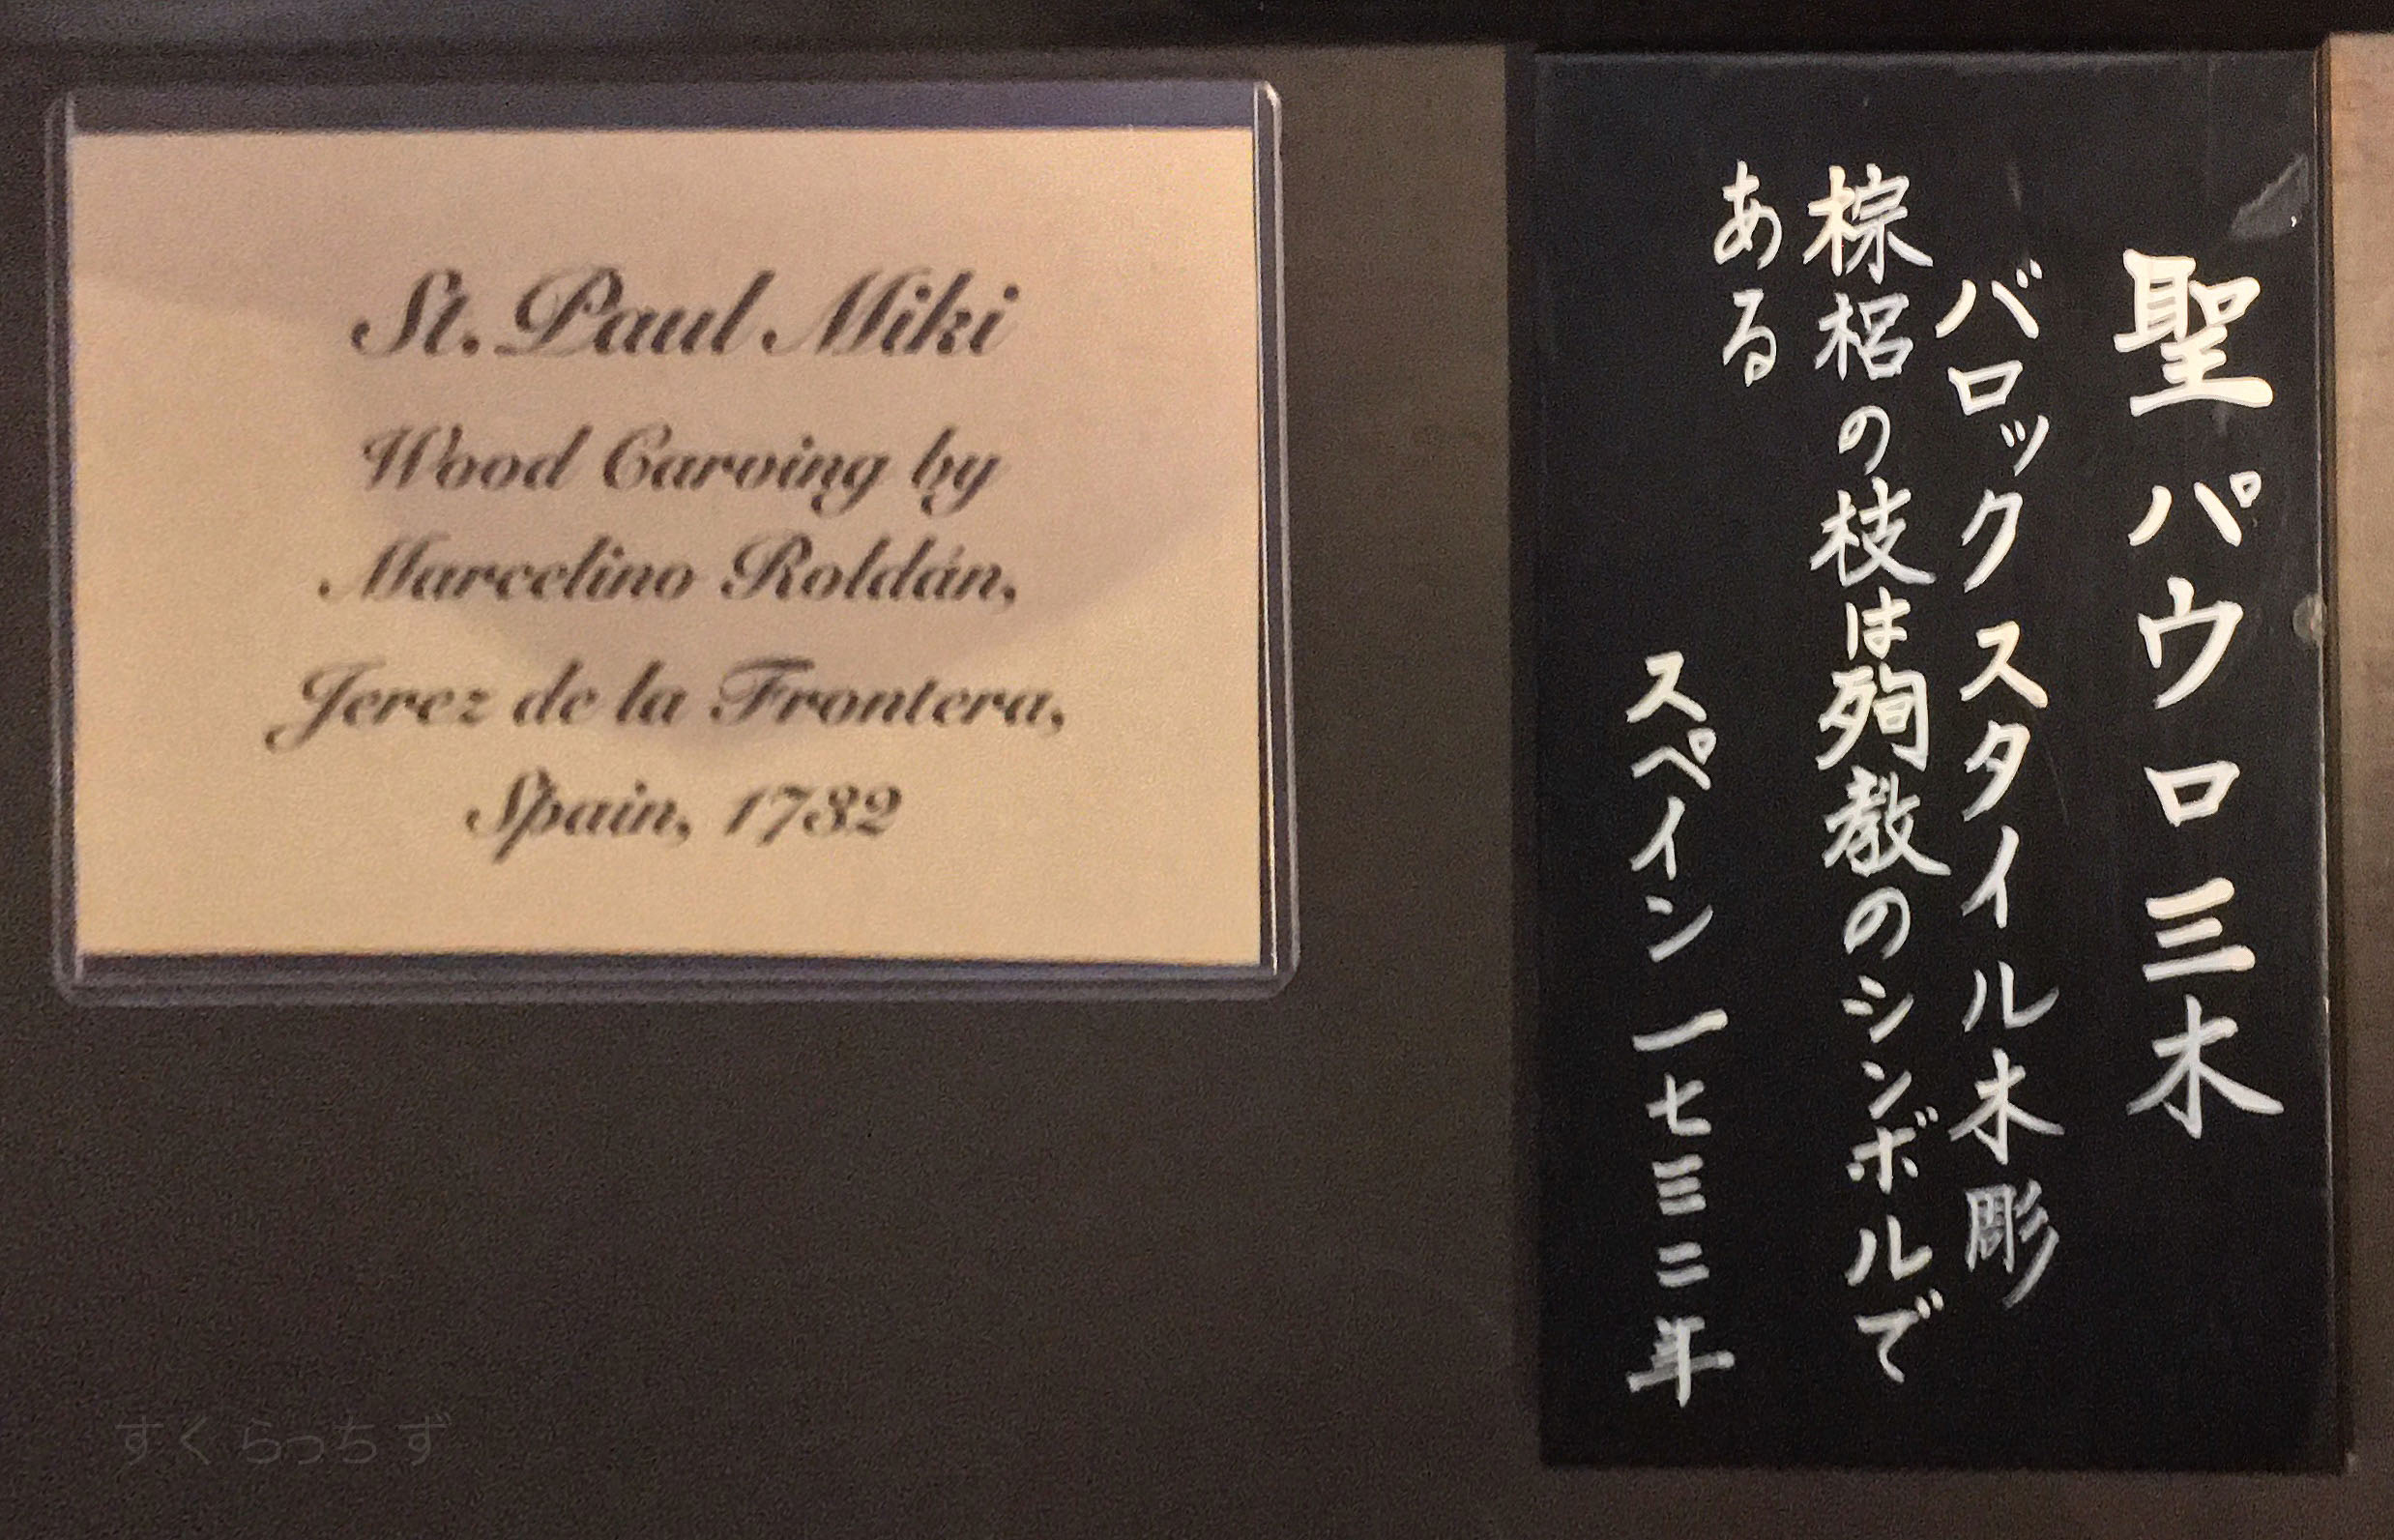 St. Paul Miki
Wood Carving by
Marcelino Roldán,
Jerez de la Frontera,
Spain, 1732
聖パウロ三木
バロックスタイル木彫
棕梠の枝は殉教のシンボルで
ある
スペイン一七三二年
すくらっちず